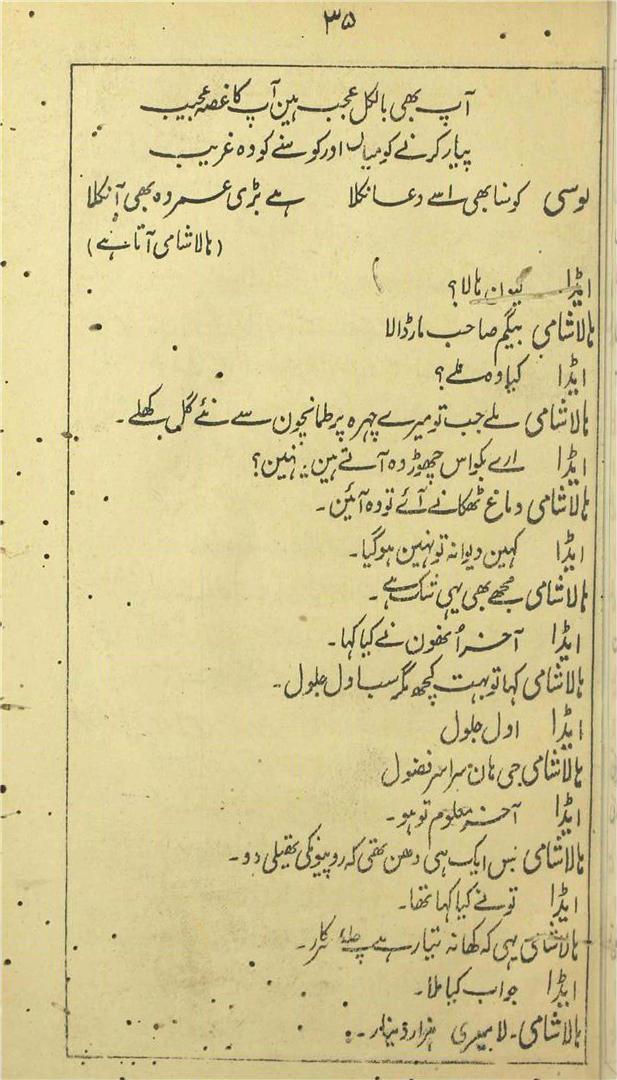 ۳۵
آپ بھی بالکل عجب ہین آپ کا غصہ عجیب
پیار کرنے کو میان اور کوسنے کو وہ غریب
لوسی کوسنا بھی اسے دعا نکلا ہے بڑی عمر وہ بھی آ نکلا
(ہالاشامی آتا ہے)
ایڈا کیون ہالا؟
ہالاشامی بیگم صاحب مار ڈالا
ایڈا کیا وہ ملے؟
ہالاشامی ملے جب تو میرے چہرہ پر طمانچون سے نئے گل کھلے۔
ایڈا ارے بکواس چھوڑ وہ آتے ہین یا نہین؟
ہالاشامی دماغ ٹھکانے آئے تو وہ آئین۔
ایڈا کہین دیوانہ تو نہین ہو گیا۔
ہالاشامی مجھے بھی یہی شک ہے۔
ایڈا آخر اُنھون نے کیا کہا۔
ہالاشامی کہا تو بہت کچھ مگر سب اول جلول۔
ایڈا اول جلول
ہالاشامی جی ہان سراسر فضول
ایڈا آخر معلوم تو ہو۔
ہالاشامی بس ایک ہی دھن تھی کہ روپیونکی تھیلی دو۔
ایڈا تونے کیا کہا تھا۔
ہالاشامی یہی کہ کھانہ تیار ہے چلئے سرکار۔
ایڈا جواب کیا ملا۔
ہالاشامی۔ لا میری ہزار دینار۔